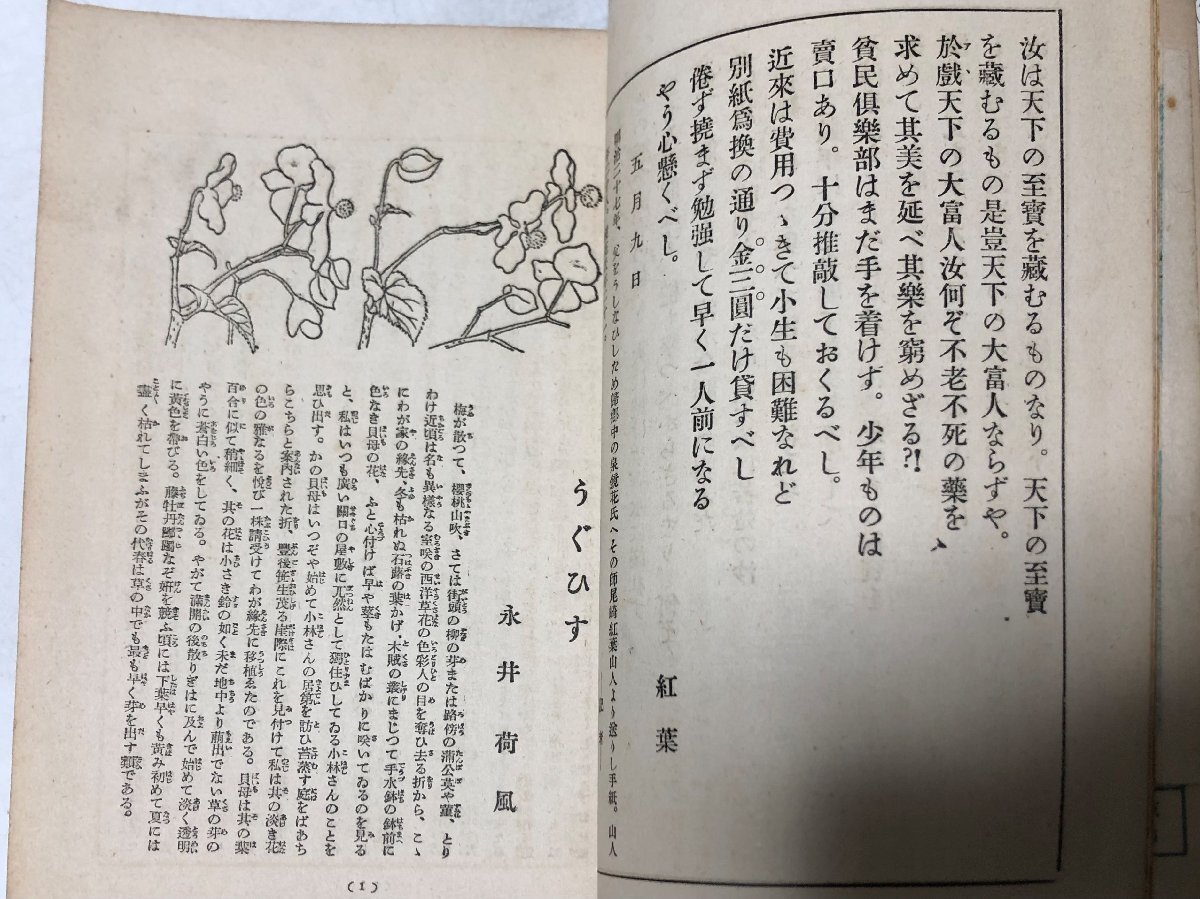 汝は天下の至寶を藏むるものなり。天下の至寶
を藏むるもの是豈天下の大富人ならずや。
於戲天下の大富人汝何ぞ不老不死の藥を
求めて其美を延べ其樂を窮めざる?!
貧民倶樂部はまだ手を着けず。少年ものは
賣口あり。十分推敲しておくるべし。
近來は費用つゞきて小生も困難なれど
別紙爲換の通り金三圓だけ貸すべし
倦ず撓まず勉强して早く一人前になる
やう心懸くべし。
五月九日
紅葉
中の泉鏡花氏へその師尾崎紅葉山人より送りし手紙。山人
うぐひす
永井荷風
梅が散つて、櫻桃山吹、さては街頭の柳の芽または路傍の蒲公英や菫、とり
わけ近頃は名も異樣なる室咲の西洋草花の色彩人の目を奪ひ去る折から、こゝ
にわが家の緣先、冬も枯れぬ石蕗の葉かげ、木賊の叢にまじつて手水鉢の鉢前に
色なき貝母の花、ふと心付けば早や莖もたはむばかりに咲いてゐるのを見る
と、私はいつも廣い關口の屋敷に兀然として獨住ひしてゐる小林さんのことを
思ひ出す。かの貝母はいつぞや始めて小林さんの居第を訪ひ苔蒸す庭をばあち
らこちらと案內された折、豐後笹生茂る崖際にこれを見付けて私は其の淡き花
の色の雅なるを悅び一株請受けてわが緣先に移植ゑたのである。貝母は其の葉
百合に似て稍細く、其の花は小さき鈴の如く未だ地中より萠出でない草の芽の
やうに蒼白い色をしてゐる。やがて滿開の後散りぎはに及んで始めて淡く透明
に黃色を帶びる。藤牡丹躑躅なぞ姸を競ふ頃には下葉早くも黃み初めて夏には
盡く枯れてしまふがその代春は草の中でも最も早く芽を出す類である。
(1)